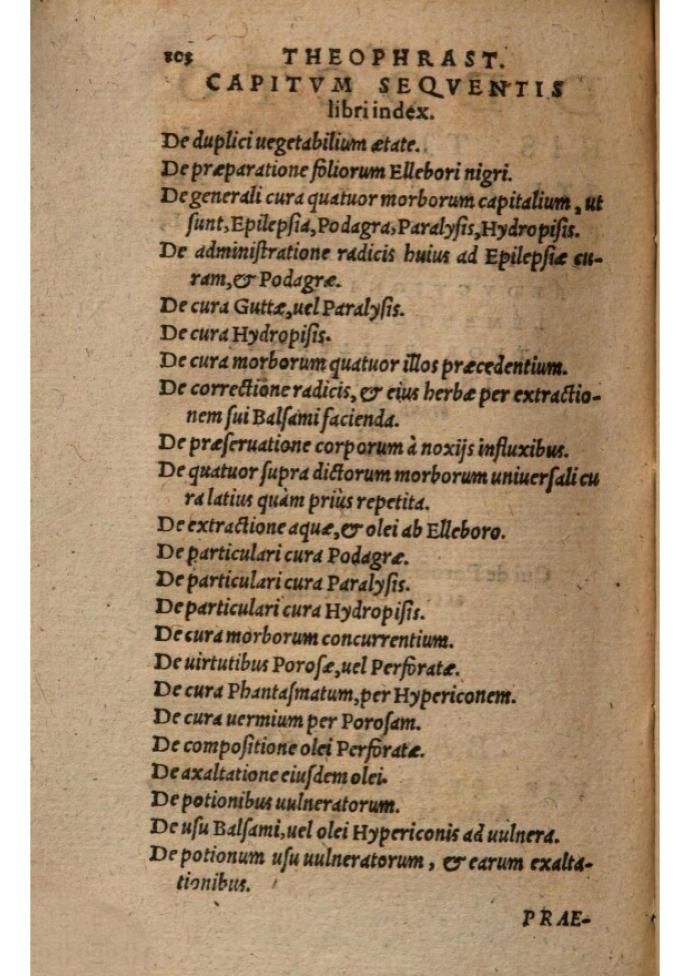 THEOPHRAST.
CAPITVM SEQVENTIS
libri index.
De duplici uegetabilium ætate.
De præparatione foliorum Ellebori nigri.
De generali cura quatuor morborum capitalium, ut
ſunt, Epilepſia, Podagra, Paralyſis, Hydropiſis.
De adminiſtratione radicis huius ad Epilepſiæ cu-
ram, & Podagræ.
De cura Guttæ, uel Paralyſis.
De cura Hydropiſis.
De cura morborum quatuor illos præcedentium.
De correctione radicis, & eius herbæ per extractio-
nem ſui Balſami facienda.
De præſeruatione corporum à noxijs influxibus.
De quatuor ſupra dictorum morborum uniuerſali cu
ra latius quàm priùs repetita.
De extractione aquæ, & olei ab Elleboro.
De particulari cura Podagræ.
De particulari cura Paralyſis.
De particulari cura Hydropiſis.
De cura morborum concurrentium.
De uirtutibus Poroſæ, uel Perforatæ.
De cura Phantaſmatum, per Hypericonem.
De cura uermium per Poroſam.
De compoſitione olei Perforatæ.
De axaltatione eiuſdem olei.
De potionibus uulneratorum.
De uſu Balſami, uel olei Hypericonis ad uulnera.
De potionum uſu uulneratorum, & earum exalta-
tionibus.
PRAE-